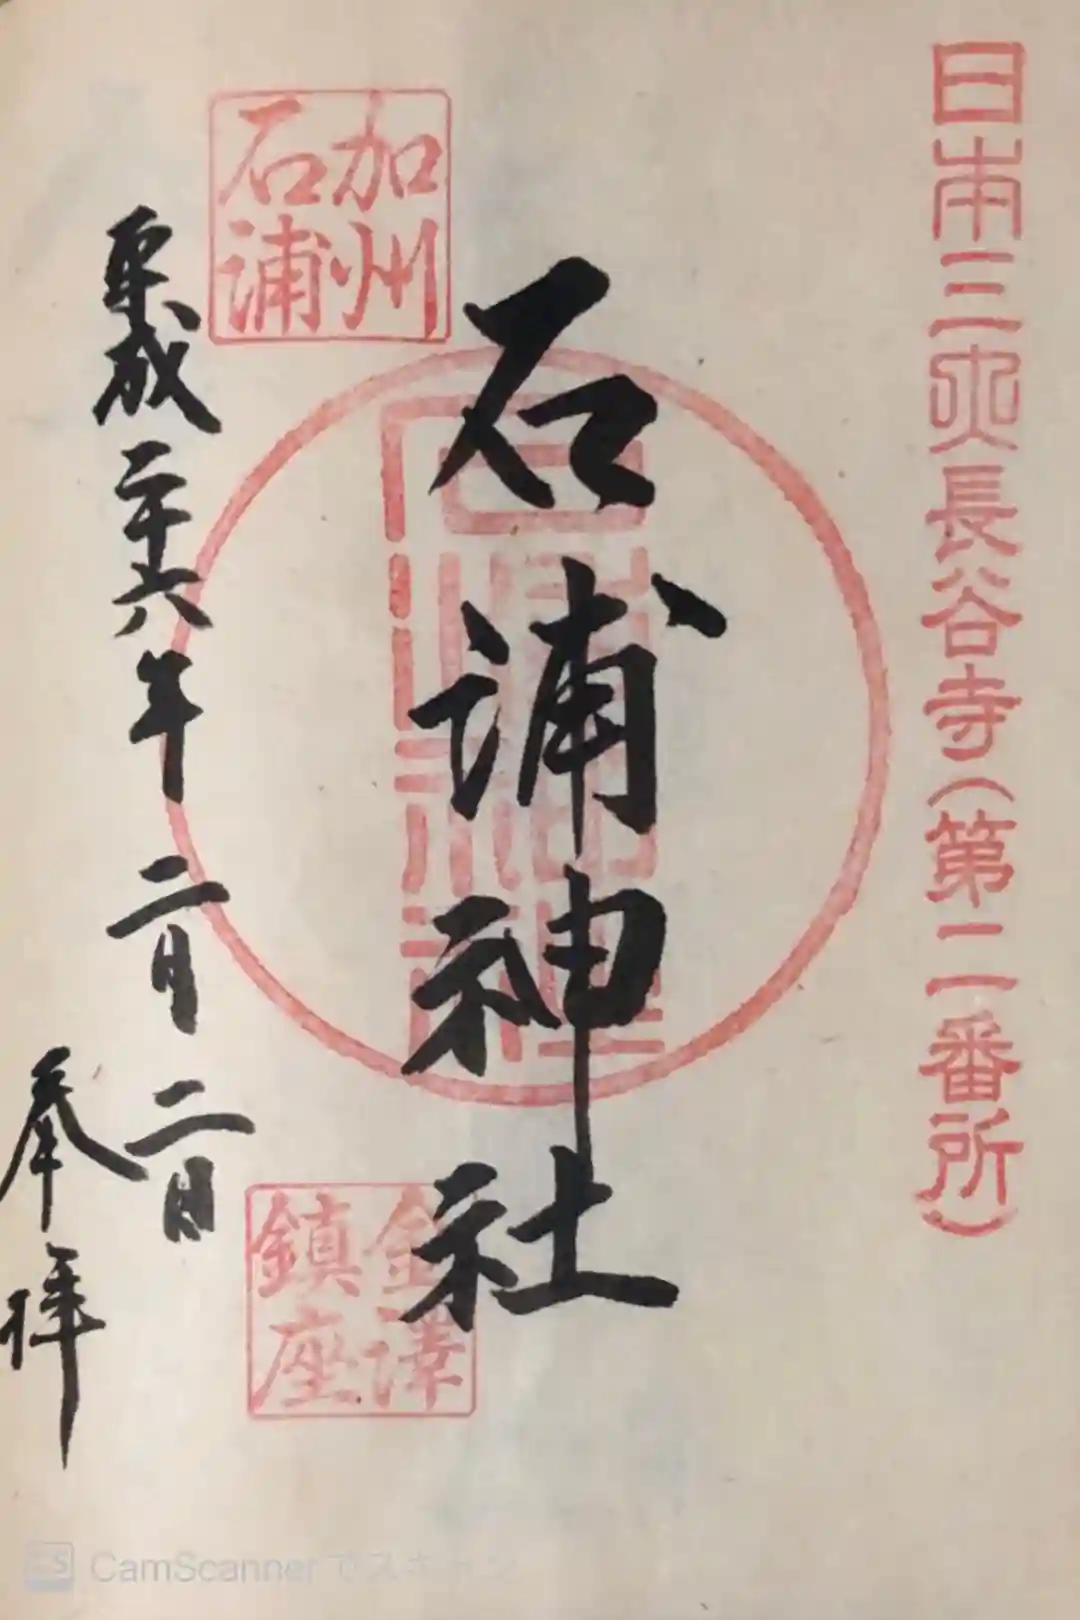 日本三大長谷寺(第二番所)
石浦神社
加州
石浦
金澤
鎮座
平成二十六年 二月 二日
奉拝
CamScanner でスキャン